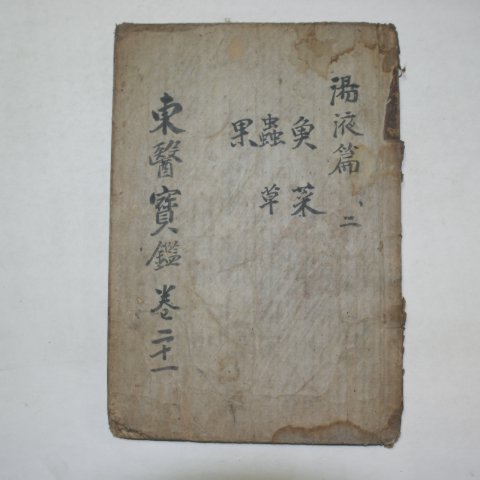 湯液篇 二
魚菜
蟲草
果
東醫寶鑑 卷二十一